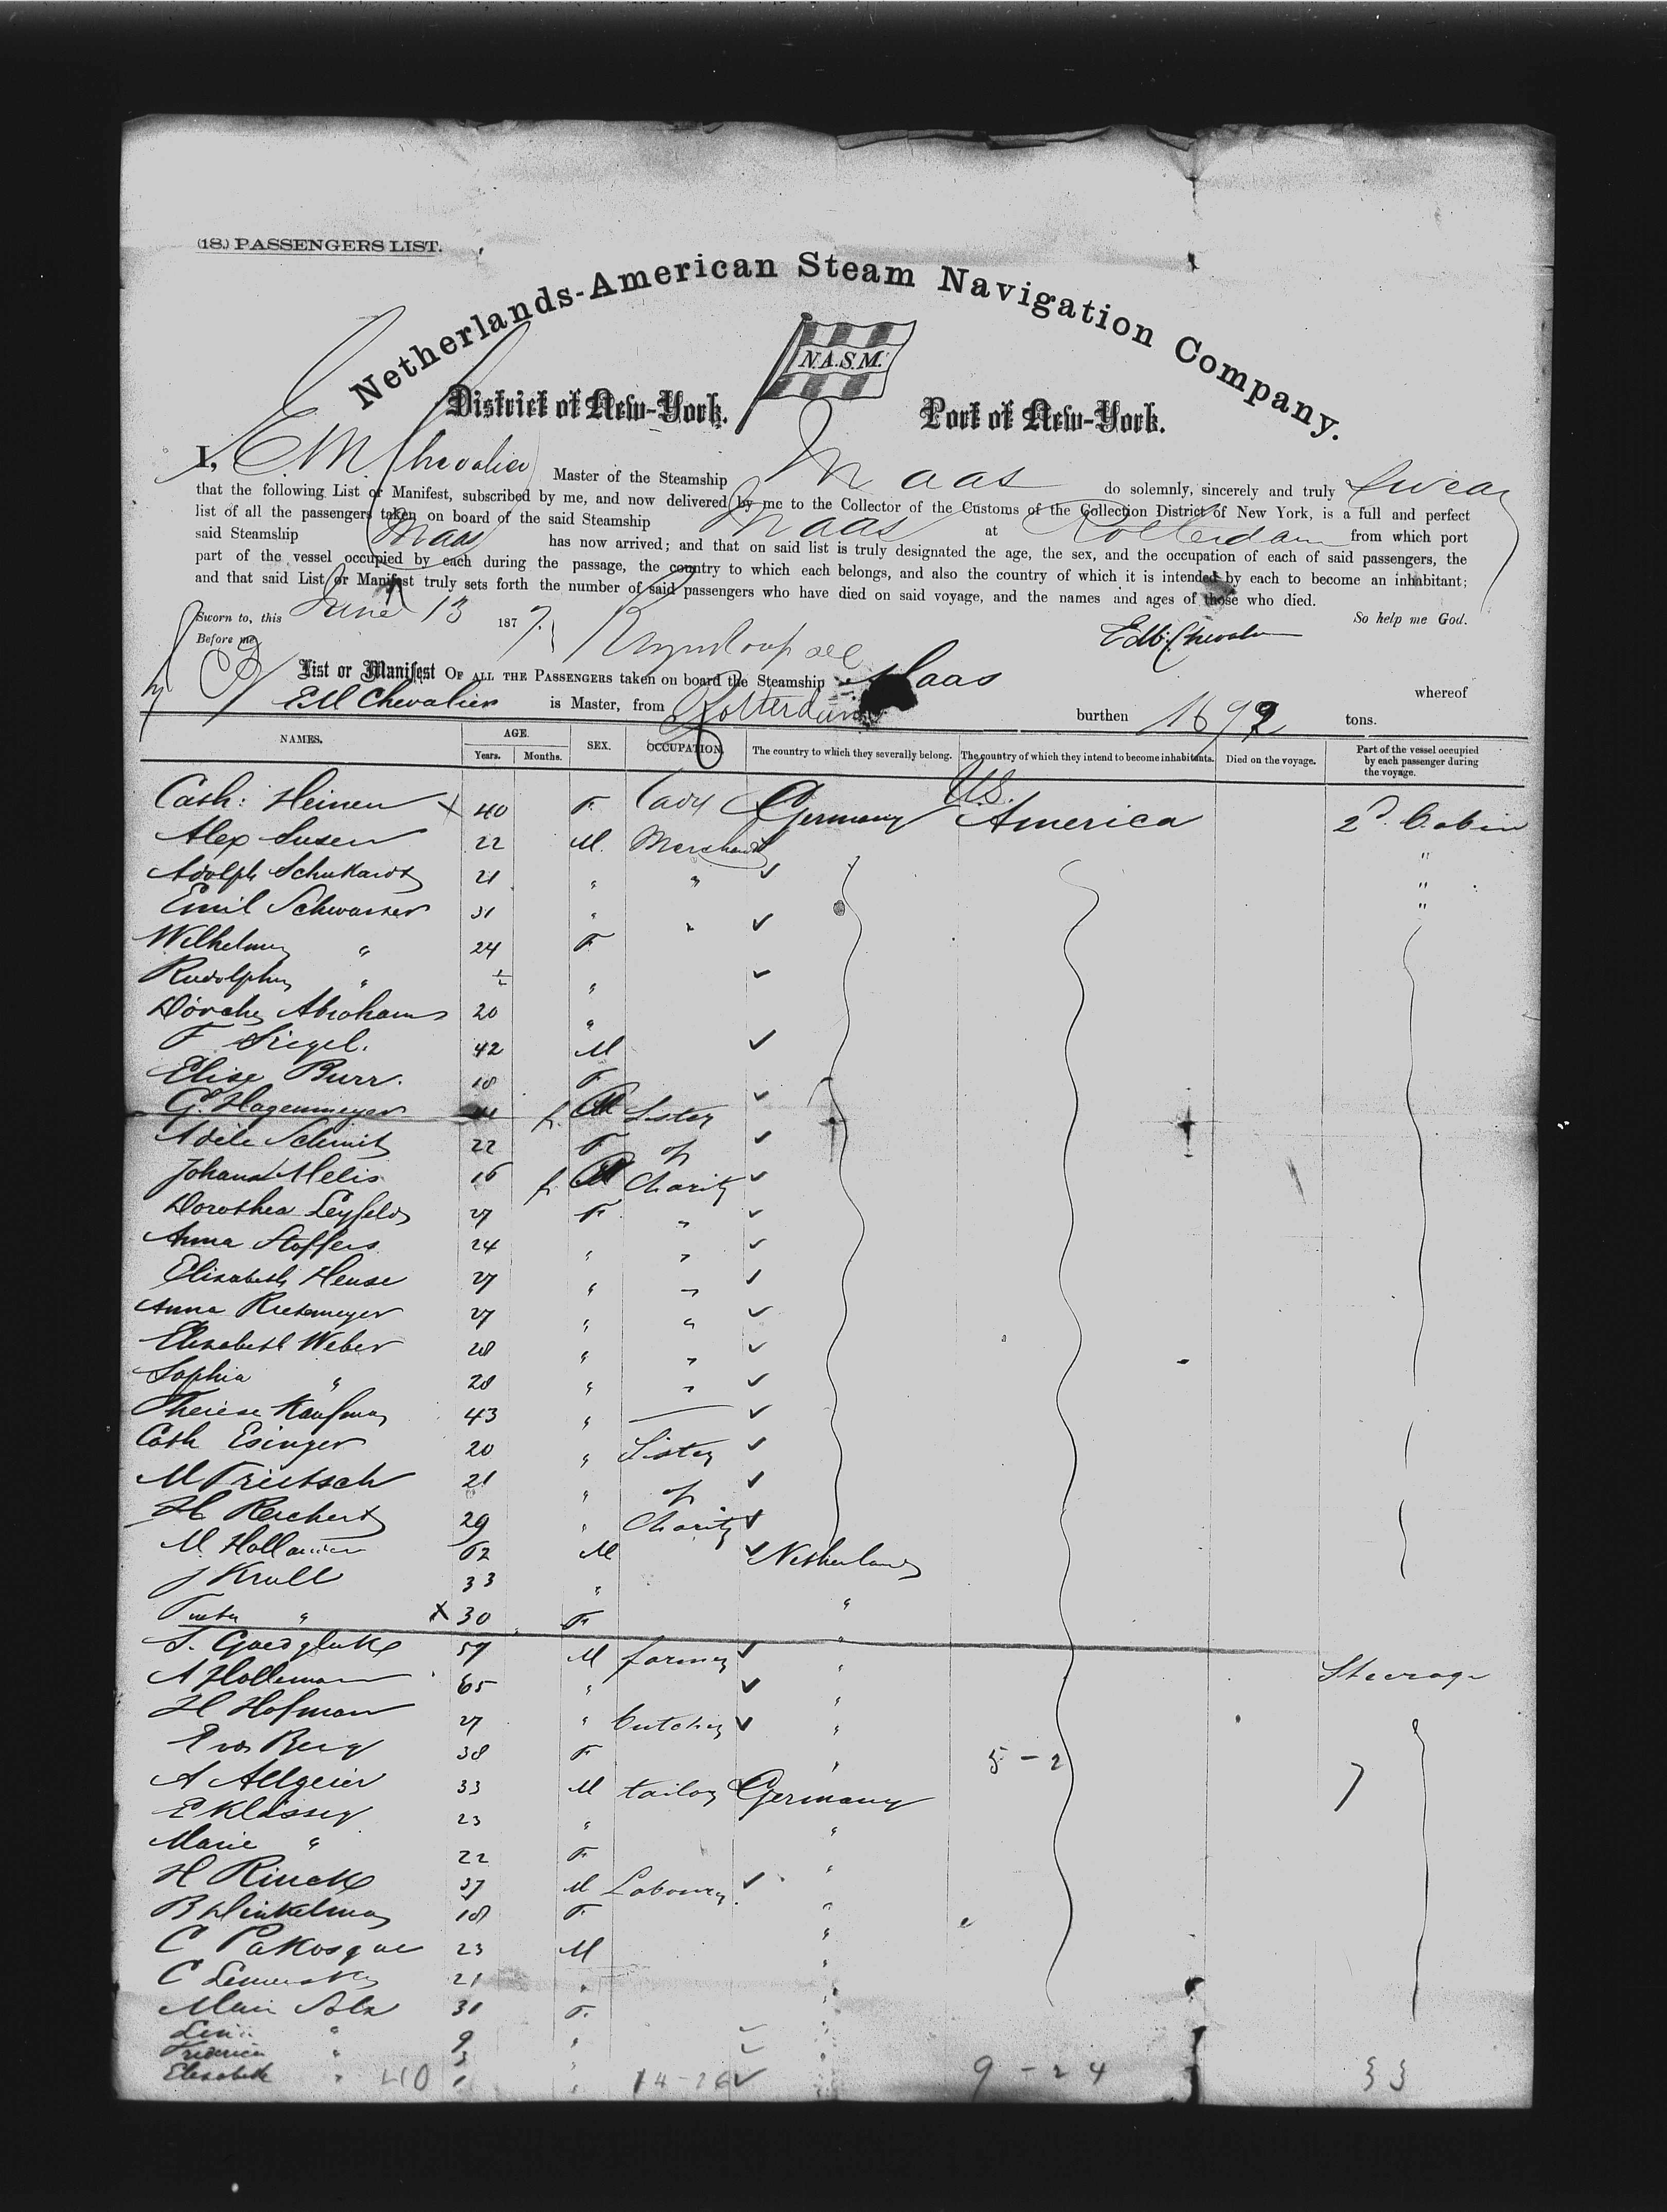 (18.) PASSENGERS LIST.
Netherlands-American Steam Navigation Company.
N.A.S.M.
District of New-York. Port of New-York.
I, E M Chevalier Master of the Steamship Maas do solemnly, sincerely and truly swear
that the following List or Manifest, subscribed by me, and now delivered by me to the Collector of the Customs of the Collection District of New York, is a full and perfect
list of all the passengers taken on board of the said Steamship Maas at Rotterdam from which port
said Steamship Maas has now arrived; and that on said list is truly designated the age, the sex, and the occupation of each of said passengers, the
part of the vessel occupied by each during the passage, the country to which each belongs, and also the country of which it is intended by each to become an inhabitant;
and that said List or Manifest truly sets forth the number of said passengers who have died on said voyage, and the names and ages of those who died.
So help me God.
Sworn to, this June 13 1877.
Before me
List or Manifest OF ALL THE PASSENGERS taken on board the Steamship Maas whereof
E M Chevalier is Master, from Rotterdam burthen tons.
NAMES. AGE. Years. Months. SEX. OCCUPATION. The country to which they severally belong. The country of which they intend to become inhabitants. Died on the voyage. Part of the vessel occupied by each passenger during the voyage.
Cath: Heinen X 40 F. Lady Germany U.S. America 2d. Cabin
Alex Susen 22 M. Merchant "
Adolph Schukardt 21 " " "
Emil Schwarzer 31 " " "
Wilhelmine " 24 F
Rudolphine " "
Abrahams 20 "
F Siegel. 42 M
Elise Burr. 18 F
G. Hagenmeyer f. Sister
Adele Schmitz 22 F of
Johana Melis 16 f. Charity
Dorothea Leyfeld 27 F. "
Anna Stoffers 24 " "
Elisabeth Hense 27 " "
Anna Rietemeyer 27 " "
Elisabeth Weber 28 " "
Sophia " 28 " "
Therese Kaufman 43 "
Cath Esinger 20 " Sister
M Trietsch 21 " of
H Reichert 29 " Charity
M. Hollander 62 M Netherlands
J Krull 33 " "
" X 30 F. "
S. Goedgluke 57 M farmer "
A Holleman 65 " " Steerage
H Hofman 27 " butcher "
Berg 38 F " 5 - 2
A Allgeier 33 M tailor Germany 7
E Klässig 23 " "
Marie " 22 F "
H Rinck 37 M Labourer "
B Dinkelman 18 F. "
C Pakosque 23 M "
C 21 " "
Solz 31 F. "
" 9 "
Frederica " 3 "
Elisabeth " 40 1 " 14-26 9 - 24 33